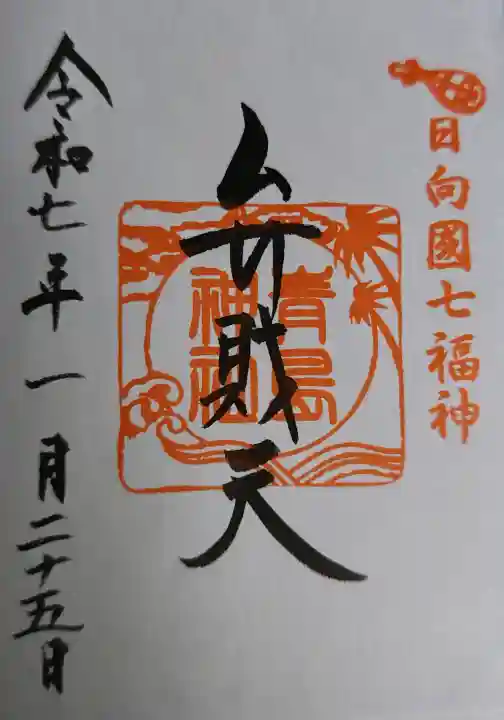 日向國七福神
弁財天
青島
神社
令和七年一月二十五日